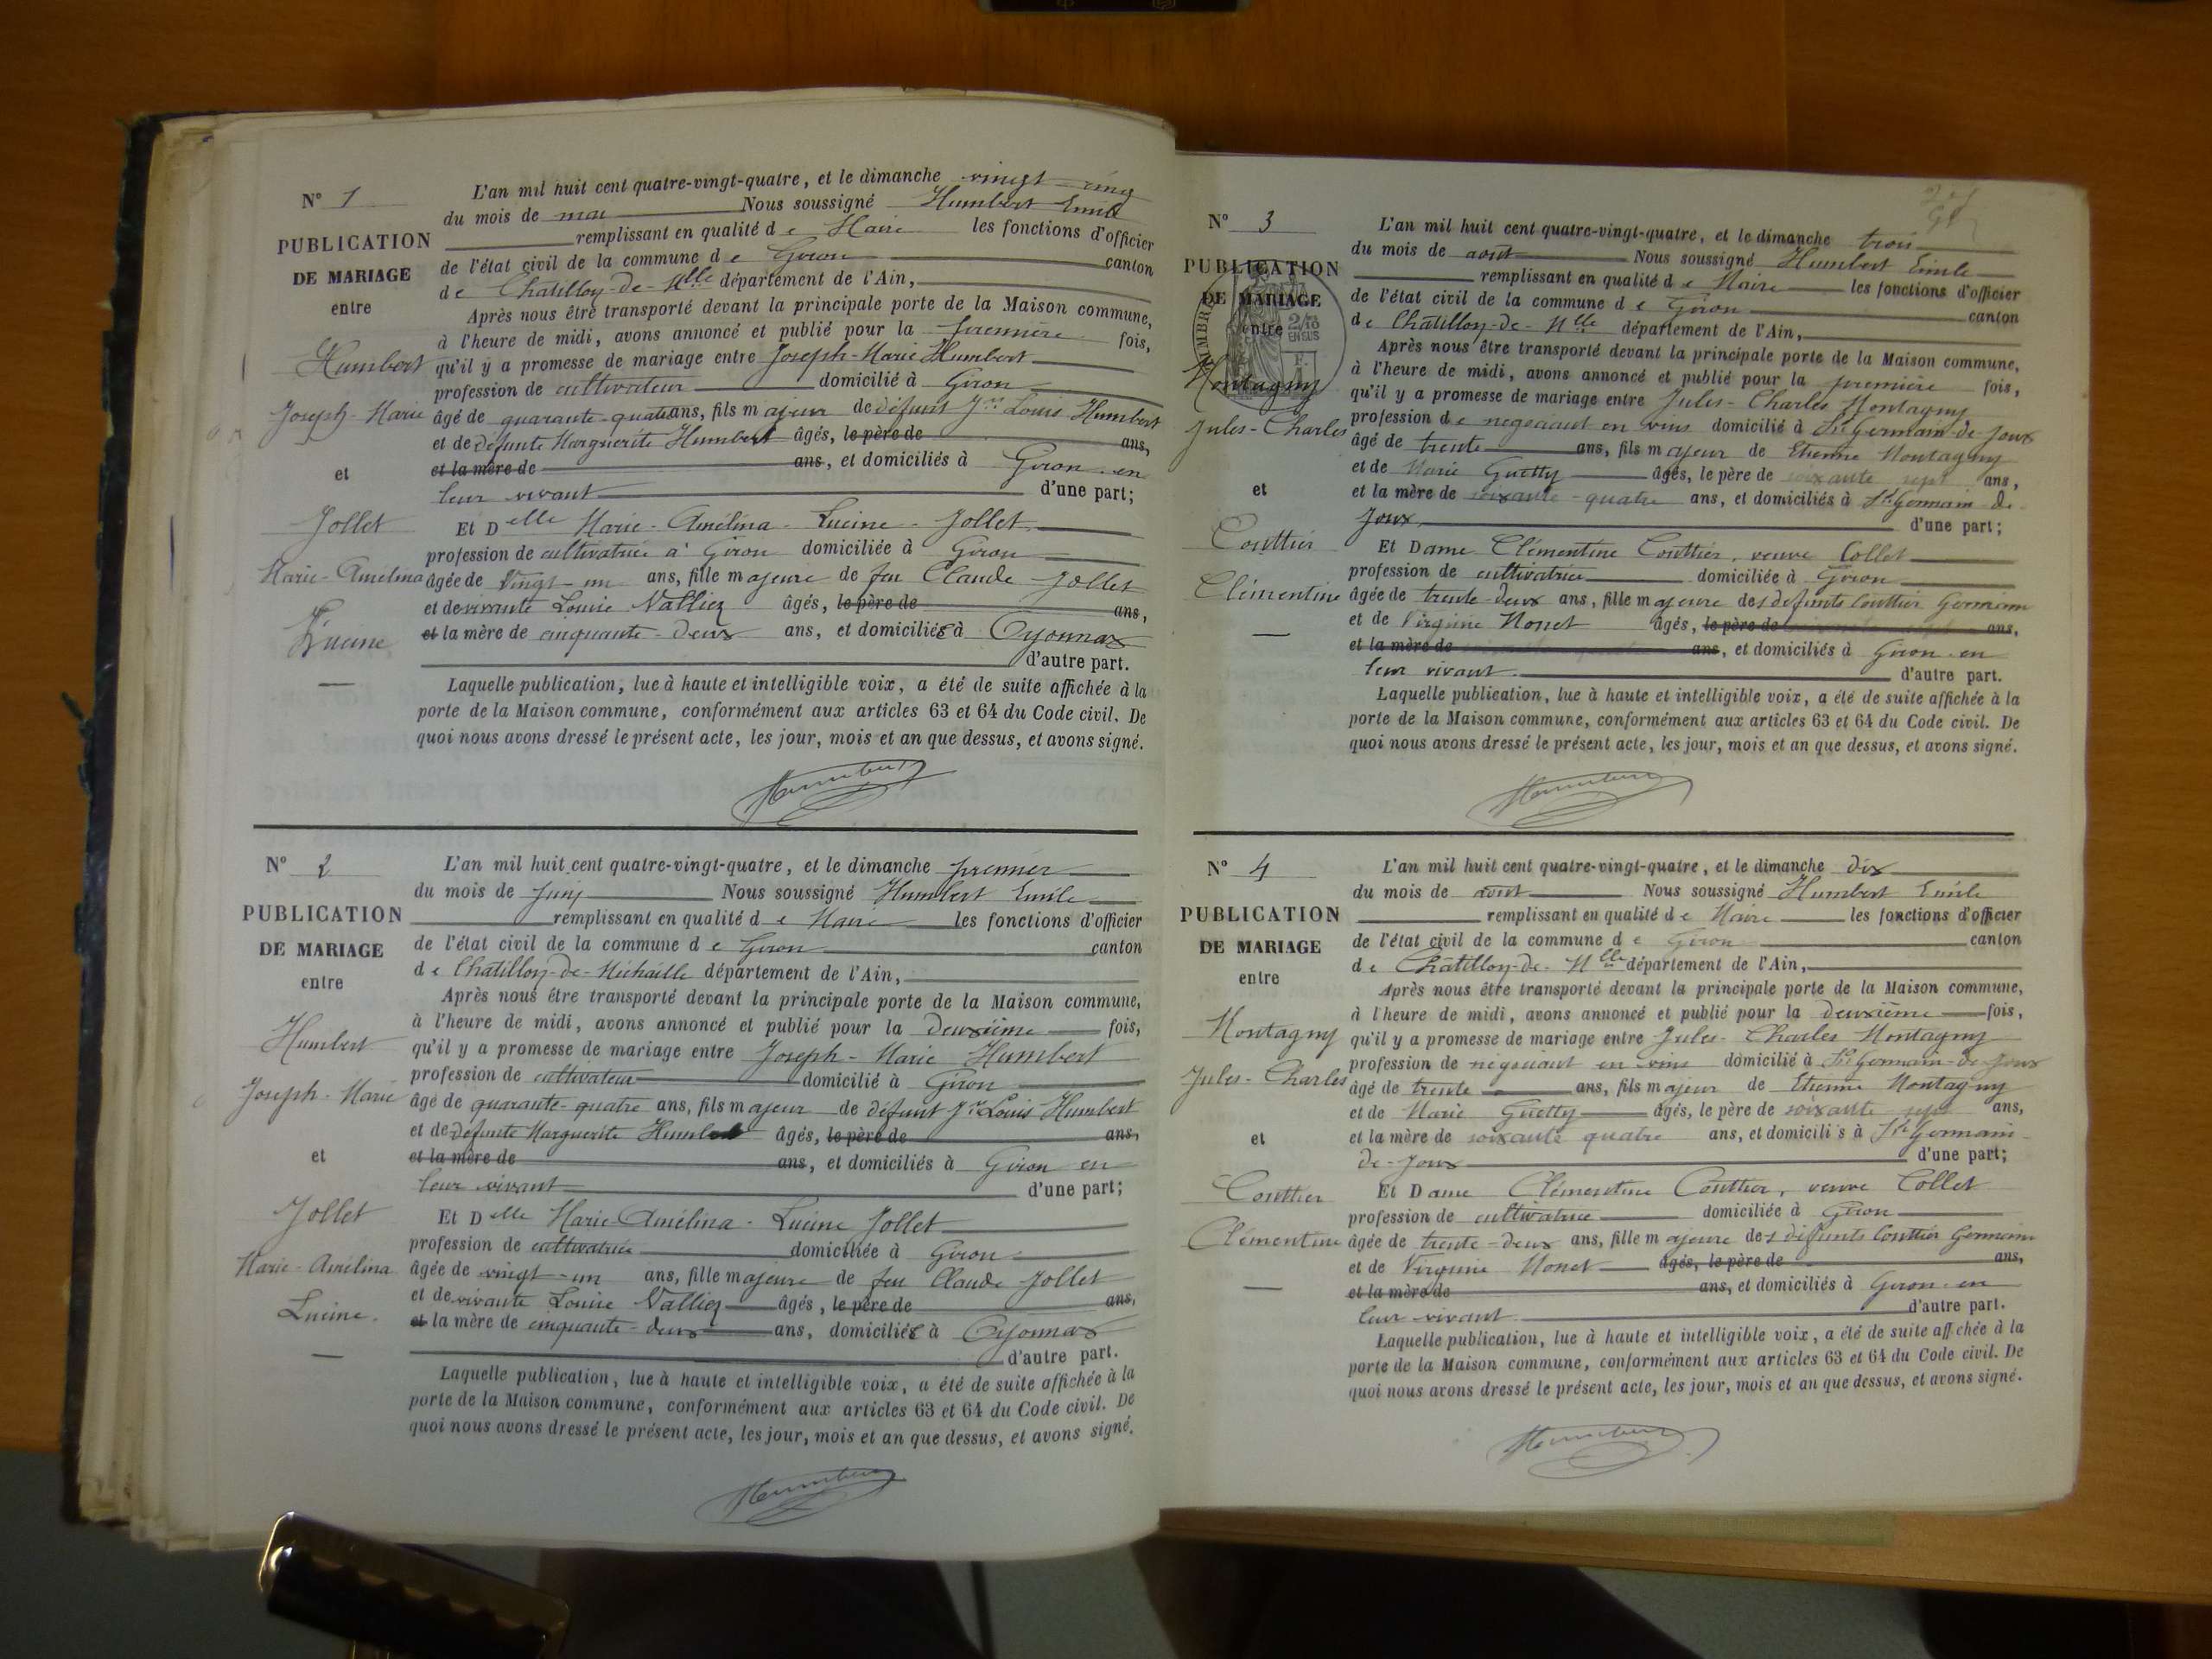 N° 1
PUBLICATION
DE MARIAGE
entre
Humbert
Joseph-Marie
et
Jollet
Marie-Amélina
Lucine
L'an mil huit cent quatre-vingt-quatre, et le dimanche vingt-cinq
du mois de mai Nous soussigné Humbert Emile
remplissant en qualité de Maire les fonctions d'officier
de l'état civil de la commune de Giron canton
de Chatillon-de-Mlle département de l'Ain,
Après nous être transporté devant la principale porte de la Maison commune,
à l'heure de midi, avons annoncé et publié pour la première fois,
qu'il y a promesse de mariage entre Joseph-Marie Humbert
profession de cultivateur domicilié à Giron
âgé de quarante-quatre ans, fils majeur de défunt Jn Louis Humbert
et de défunte Marguerite Humbert âgés, le père de ans,
et la mère de ans, et domiciliés à Giron en
leur vivant d'une part;
Et Delle Marie-Amélina-Lucine-Jollet
profession de cultivatrice à Giron domiciliée à Giron
âgée de vingt-un ans, fille majeure de feu Claude Jollet
et de vivante Louise Valliez âgés, le père de ans,
et la mère de cinquante-deux ans, et domiciliés à Oyonnax
d'autre part.
Laquelle publication, lue à haute et intelligible voix, a été de suite affichée à la
porte de la Maison commune, conformément aux articles 63 et 64 du Code civil. De
quoi nous avons dressé le présent acte, les jour, mois et an que dessus, et avons signé.
Humbert
N° 2
PUBLICATION
DE MARIAGE
entre
Humbert
Joseph-Marie
et
Jollet
Marie-Amélina
Lucine.
L'an mil huit cent quatre-vingt-quatre, et le dimanche premier
du mois de Juin Nous soussigné Humbert Emile
remplissant en qualité de Maire les fonctions d'officier
de l'état civil de la commune de Giron canton
de Chatillon-de-Michaille département de l'Ain,
Après nous être transporté devant la principale porte de la Maison commune,
à l'heure de midi, avons annoncé et publié pour la deuxième fois,
qu'il y a promesse de mariage entre Joseph-Marie Humbert
profession de cultivateur domicilié à Giron
âgé de quarante-quatre ans, fils majeur de défunt Jn Louis Humbert
et de défunte Marguerite Humbert âgés, le père de ans,
et la mère de ans, et domiciliés à Giron en
leur vivant d'une part;
Et Delle Marie-Amélina-Lucine Jollet
profession de cultivatrice domiciliée à Giron
âgée de vingt-un ans, fille majeure de feu Claude Jollet
et de vivante Louise Valliez âgés, le père de ans,
et la mère de cinquante-deux ans, domiciliés à Oyonnax
d'autre part.
Laquelle publication, lue à haute et intelligible voix, a été de suite affichée à la
porte de la Maison commune, conformément aux articles 63 et 64 du Code civil. De
quoi nous avons dressé le présent acte, les jour, mois et an que dessus, et avons signé.
Humbert
N° 3
PUBLICATION
DE MARIAGE
entre
Montagny
Jules-Charles
et
Couttier
Clémentine
L'an mil huit cent quatre-vingt-quatre, et le dimanche trois
du mois de août Nous soussigné Humbert Emile
remplissant en qualité de Maire les fonctions d'officier
de l'état civil de la commune de Giron canton
de Châtillon-de-Mlle département de l'Ain,
Après nous être transporté devant la principale porte de la Maison commune,
à l'heure de midi, avons annoncé et publié pour la première fois,
qu'il y a promesse de mariage entre Jules-Charles Montagny
profession de négociant en vins domicilié à St Germain-de-Joux
âgé de trente ans, fils majeur de Etienne Montagny
et de Marie Guetty âgés, le père de soixante sept ans,
et la mère de soixante-quatre ans, et domiciliés à St Germain-de-
Joux d'une part;
Et Dame Clémentine Couttier, veuve Collet
profession de cultivatrice domiciliée à Giron
âgée de trente-deux ans, fille majeure des défunts Couttier Germain
et de Virginie Monet âgés, le père de ans,
et la mère de ans, et domiciliés à Giron en
leur vivant d'autre part.
Laquelle publication, lue à haute et intelligible voix, a été de suite affichée à la
porte de la Maison commune, conformément aux articles 63 et 64 du Code civil. De
quoi nous avons dressé le présent acte, les jour, mois et an que dessus, et avons signé.
Humbert
N° 4
PUBLICATION
DE MARIAGE
entre
Montagny
Jules-Charles
et
Couttier
Clémentine
L'an mil huit cent quatre-vingt-quatre, et le dimanche dix
du mois de août Nous soussigné Humbert Emile
remplissant en qualité de Maire les fonctions d'officier
de l'état civil de la commune de Giron canton
de Châtillon-de-Mlle département de l'Ain,
Après nous être transporté devant la principale porte de la Maison commune,
à l'heure de midi, avons annoncé et publié pour la deuxième fois,
qu'il y a promesse de mariage entre Jules-Charles Montagny
profession de négociant en vins domicilié à St Germain-de-Joux
âgé de trente ans, fils majeur de Etienne Montagny
et de Marie Guetty âgés, le père de soixante sept ans,
et la mère de soixante quatre ans, et domiciliés à St Germain-
de-Joux d'une part;
Et Dame Clémentine Couttier, veuve Collet
profession de cultivatrice domiciliée à Giron
âgée de trente-deux ans, fille majeure des défunts Couttier Germain
et de Virginie Monet âgés, le père de ans,
et la mère de ans, et domiciliés à Giron en
leur vivant d'autre part.
Laquelle publication, lue à haute et intelligible voix, a été de suite affichée à la
porte de la Maison commune, conformément aux articles 63 et 64 du Code civil. De
quoi nous avons dressé le présent acte, les jour, mois et an que dessus, et avons signé.
Humbert